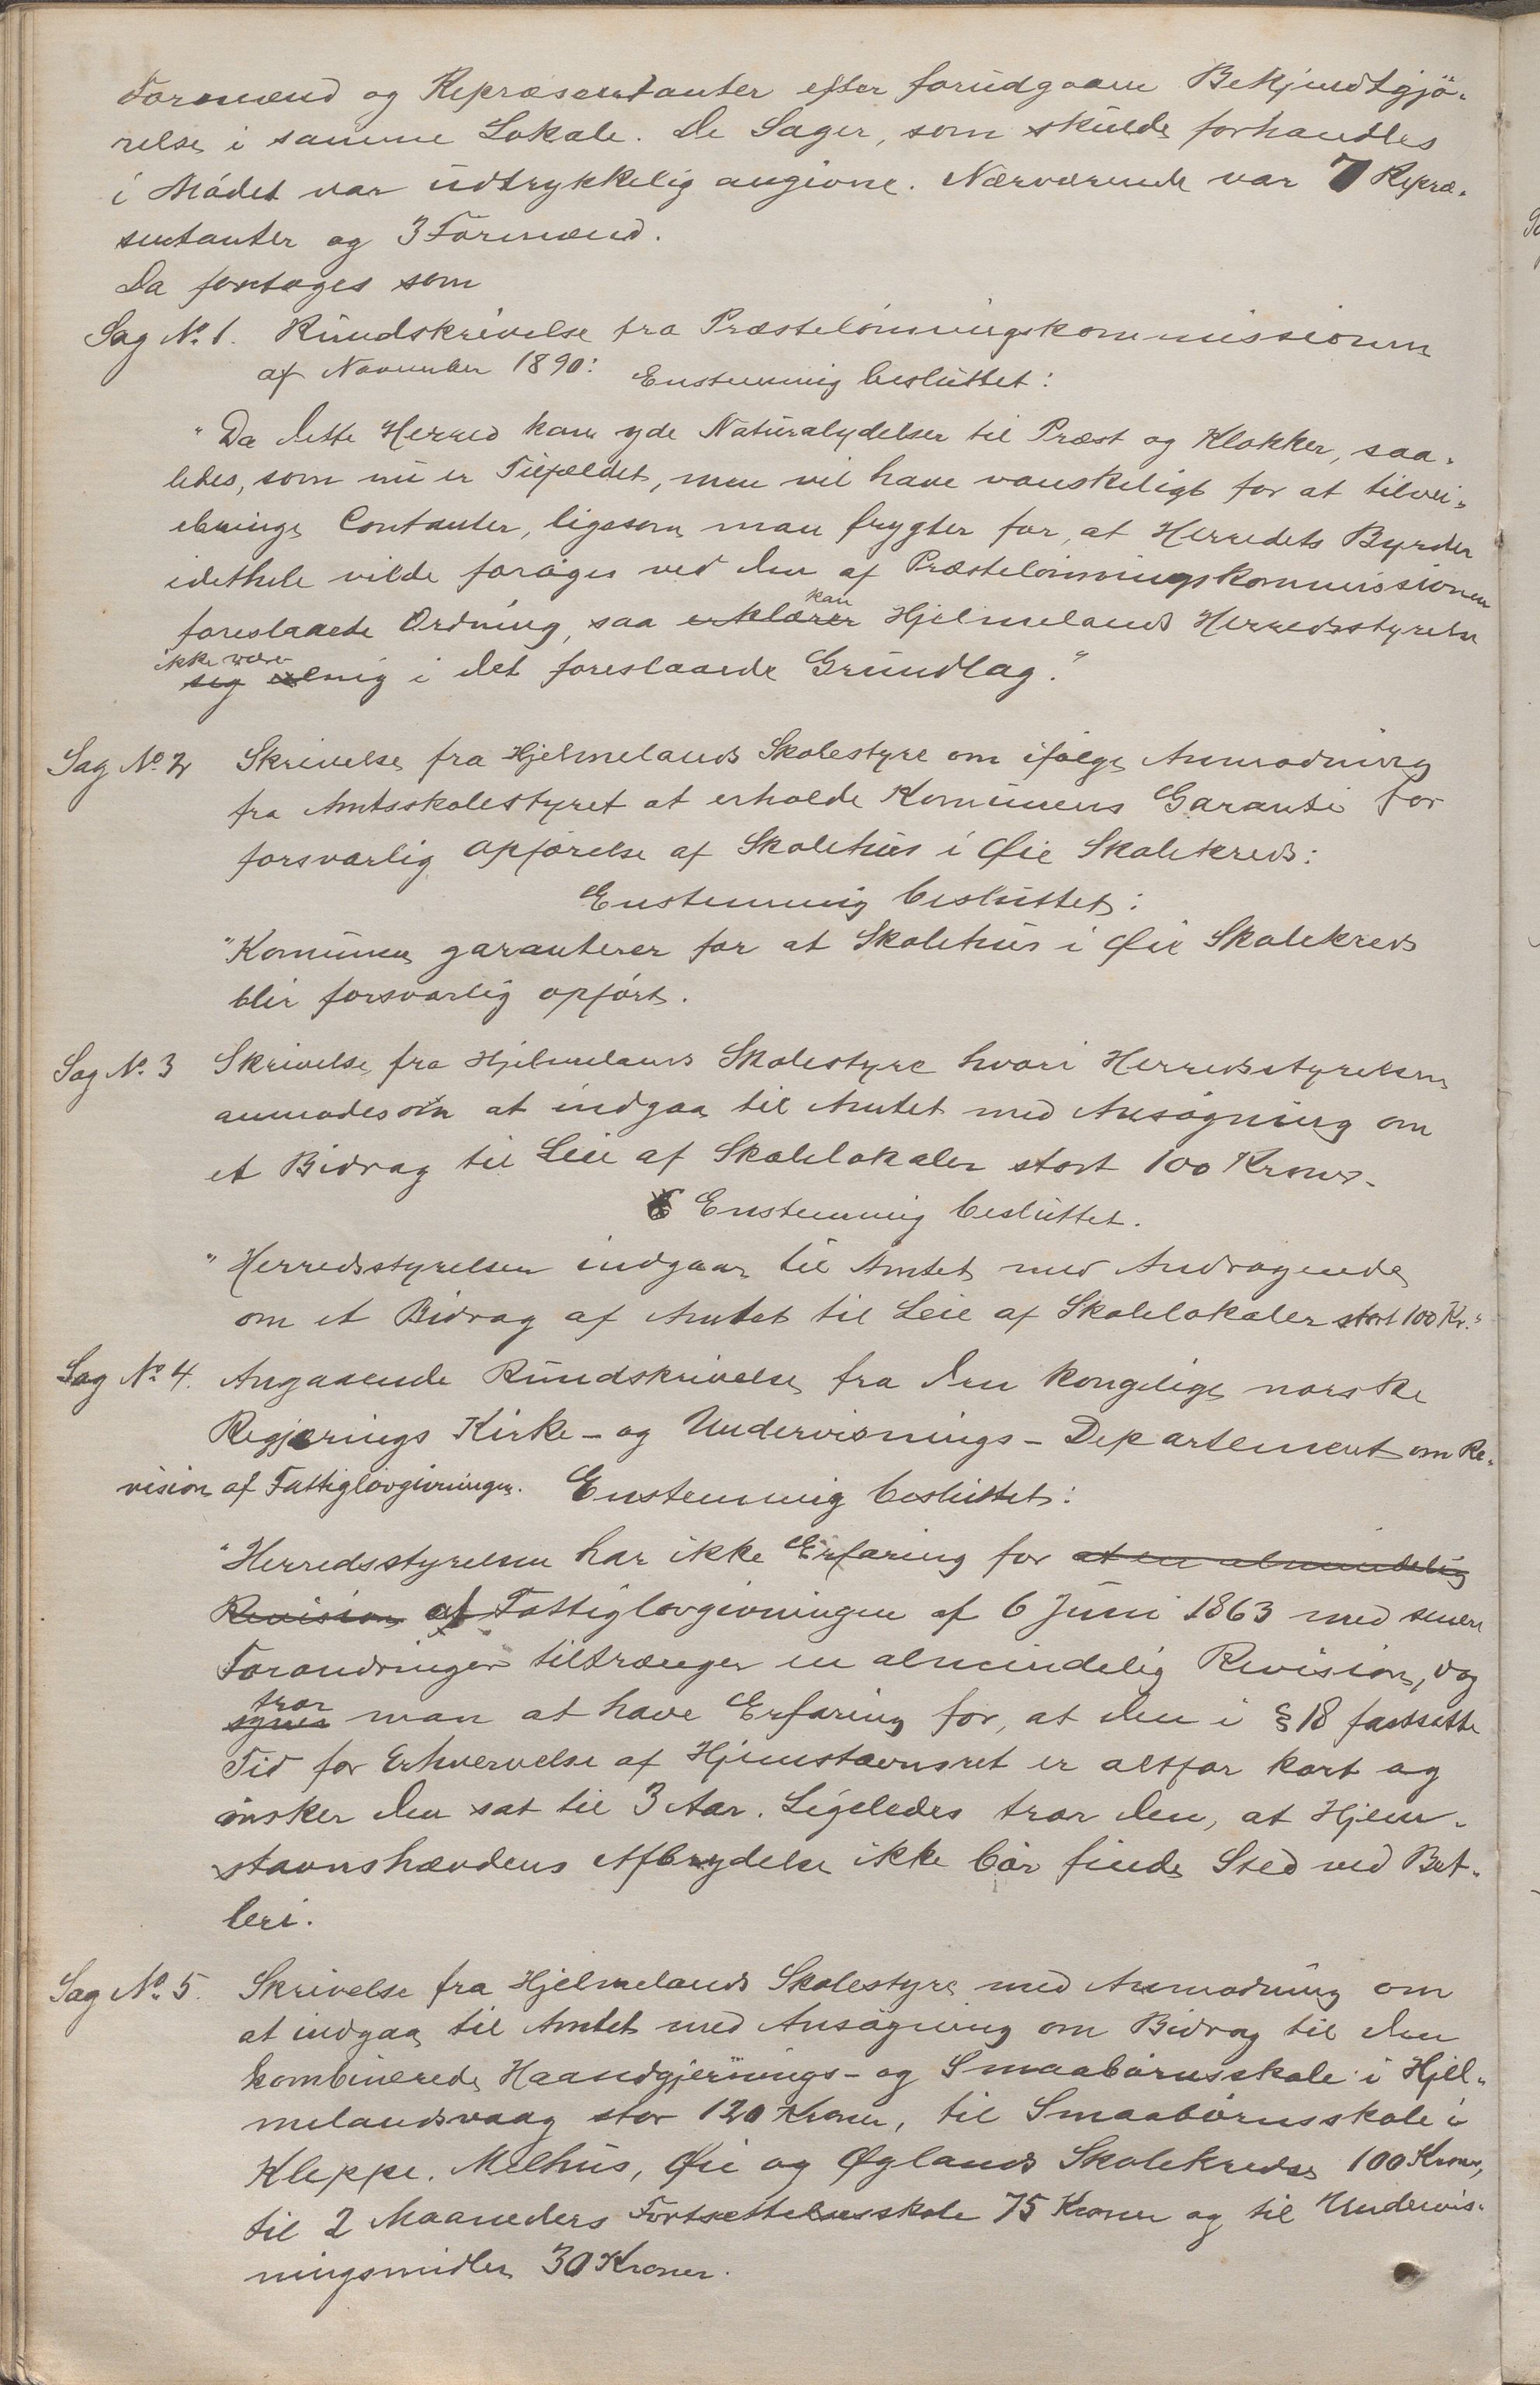 Formænd og Repræsentanter efter forudgaaen Bekjendtgjö-
relse i samme Lokale. De Sager, som skulde forhandles
i Mödet var udtrykkelig angivne. Nærværende var 7 Repræ-
sentanter og 3 Formænd.
Da foretoges som
Sag No. 1. Rundskrivelse fra Præstelönningskommissionen
af November 1890: Enstemmig besluttet:
"Da dette Herred kan yde Naturalydelser til Præst og Klokker, saa-
ledes, som nu er Tilfældet, men vil have vanskeligt for at tilvei-
ebringe Contanter, ligesom man frygter for, at Herredets Byrder
idethele vilde foröges ved den af Præstelönningskommissionen
foreslaaede Ordning, saa erklærer kan Hjelmelands Herredsstyrelse
ikke være sig enig i det foreslaaede Grundlag."
Sag No. 2 Skrivelse fra Hjelmelands Skolestyre om ifölge Anmodning
fra Amtsskolestyret at erholde Komunens Garanti for
forsvarlig Opförelse af Skolehus i Øie Skolekreds:
Enstemmig besluttet:
"Komunen garanterer for at Skolehus i Øie Skolekreds
blir forsvarlig opfört.
Sag No. 3 Skrivelse fra Hjelmelands Skolestyre hvori Herredsstyrelsen
anmodes om at indgaa til Amtet med Ansögning om
et Bidrag til Leie af Skolelokaler stort 100 Kroner.
Enstemmig besluttet.
"Herredsstyrelsen indgaar til Amtet med Andragende
om et Bidrag af Amtet til Leie af Skolelokaler stort 100 Kr."
Sag No. 4. Angaaende Rundskrivelse fra den kongelige norske
Regjerings Kirke- og Undervisnings-Departement om Re-
vision af Fattiglovgivningen. Enstemmig besluttet:
"Herredsstyrelsen har ikke Erfaring for at en almindelig
Revision af Fattiglovgivningen af 6 Juni 1863 med senere
Forandringer tiltrænger en almindelig Revision, dog
synes tror man at have Erfaring for, at den i § 18 fastsatte
Tid for Erhvervelse af Hjemstavnsret er altfor kort og
önsker den sat til 3 Aar. Ligeledes tror den, at Hjem-
stavnshævdens Afbrydelse ikke bör finde Sted ved Bet-
leri.
Sag No. 5. Skrivelse fra Hjelmelands Skolestyre med Anmodning om
at indgaa til Amtet med Ansögning om Bidrag til den
kombinerede Haandgjernings- og Smaabörnsskole i Hjel-
melandsvaag stor 120 Kroner, til Smaabörnsskole i
Kleppe, Melhus, Øie og Øglands Skolekredse 100 Kroner,
til 2 Maaneders Fortsættelsesskole 75 Kroner og til Undervis-
ningsmidler 30 Kroner.